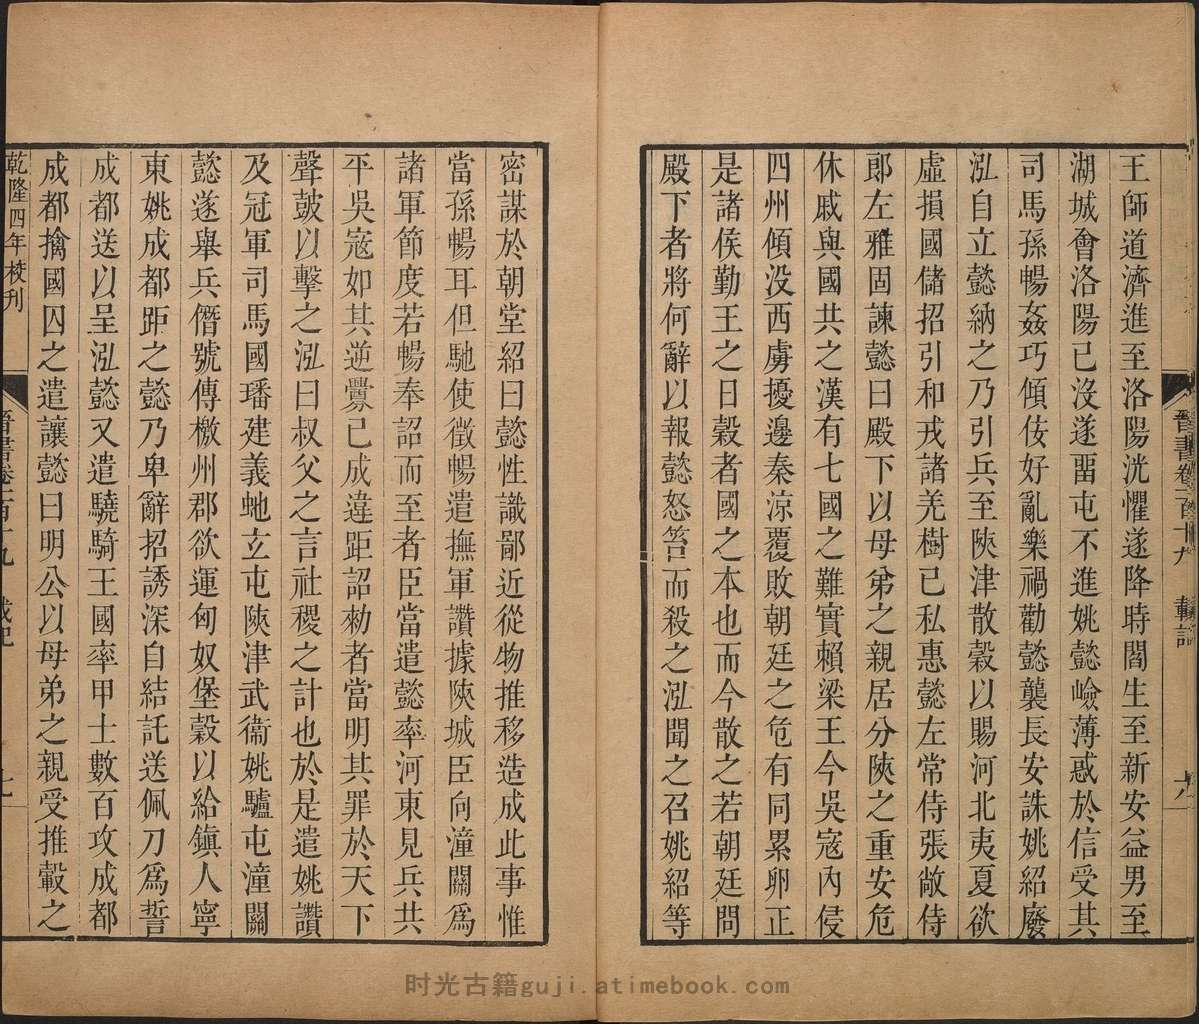 王師道濟進至洛陽洸懼遂降時閻生至新安益男至
湖城會洛陽已沒遂畱屯不進姚懿嶮薄惑於信受其
司馬孫暢姦巧傾佞好亂樂禍勸懿襲長安誅姚紹廢
泓自立懿納之乃引兵至陝津散穀以賜河北夷夏欲
虛損國儲招引和戎諸羌樹己私惠懿左常侍張敞侍
郎左雅固諫懿曰殿下以母弟之親居分陝之重安危
休戚與國共之漢有七國之難實賴梁王今吳寇內侵
四州傾没西虜擾邊秦涼覆敗朝廷之危有同累卵正
是諸侯勤王之日穀者國之本也而今散之若朝廷問
殿下者將何辭以報懿怒笞而殺之泓聞之召姚紹等
密謀於朝堂紹曰懿性識鄙近從物推移造成此事惟
當孫暢耳但馳使徵暢遣撫軍讚據陝城臣向潼關爲
諸軍節度若暢奉詔而至者臣當遣懿率河東見兵共
平吳寇如其逆釁已成違距詔勑者當明其罪於天下
聲鼓以擊之泓曰叔父之言社稷之計也於是遣姚讚
及冠軍司馬國璠建義虵立屯陝津武衞姚驢屯潼關
懿遂舉兵僭號傳檄州郡欲運匈奴堡穀以給鎭人寧
東姚成都距之懿乃卑辭招誘深自結託送佩刀爲誓
成都送以呈泓懿又遣驍騎王國率甲士數百攻成都
成都擒國囚之遣讓懿曰明公以母弟之親受推轂之
乾隆四年校刋
晉書卷一百十九 載記